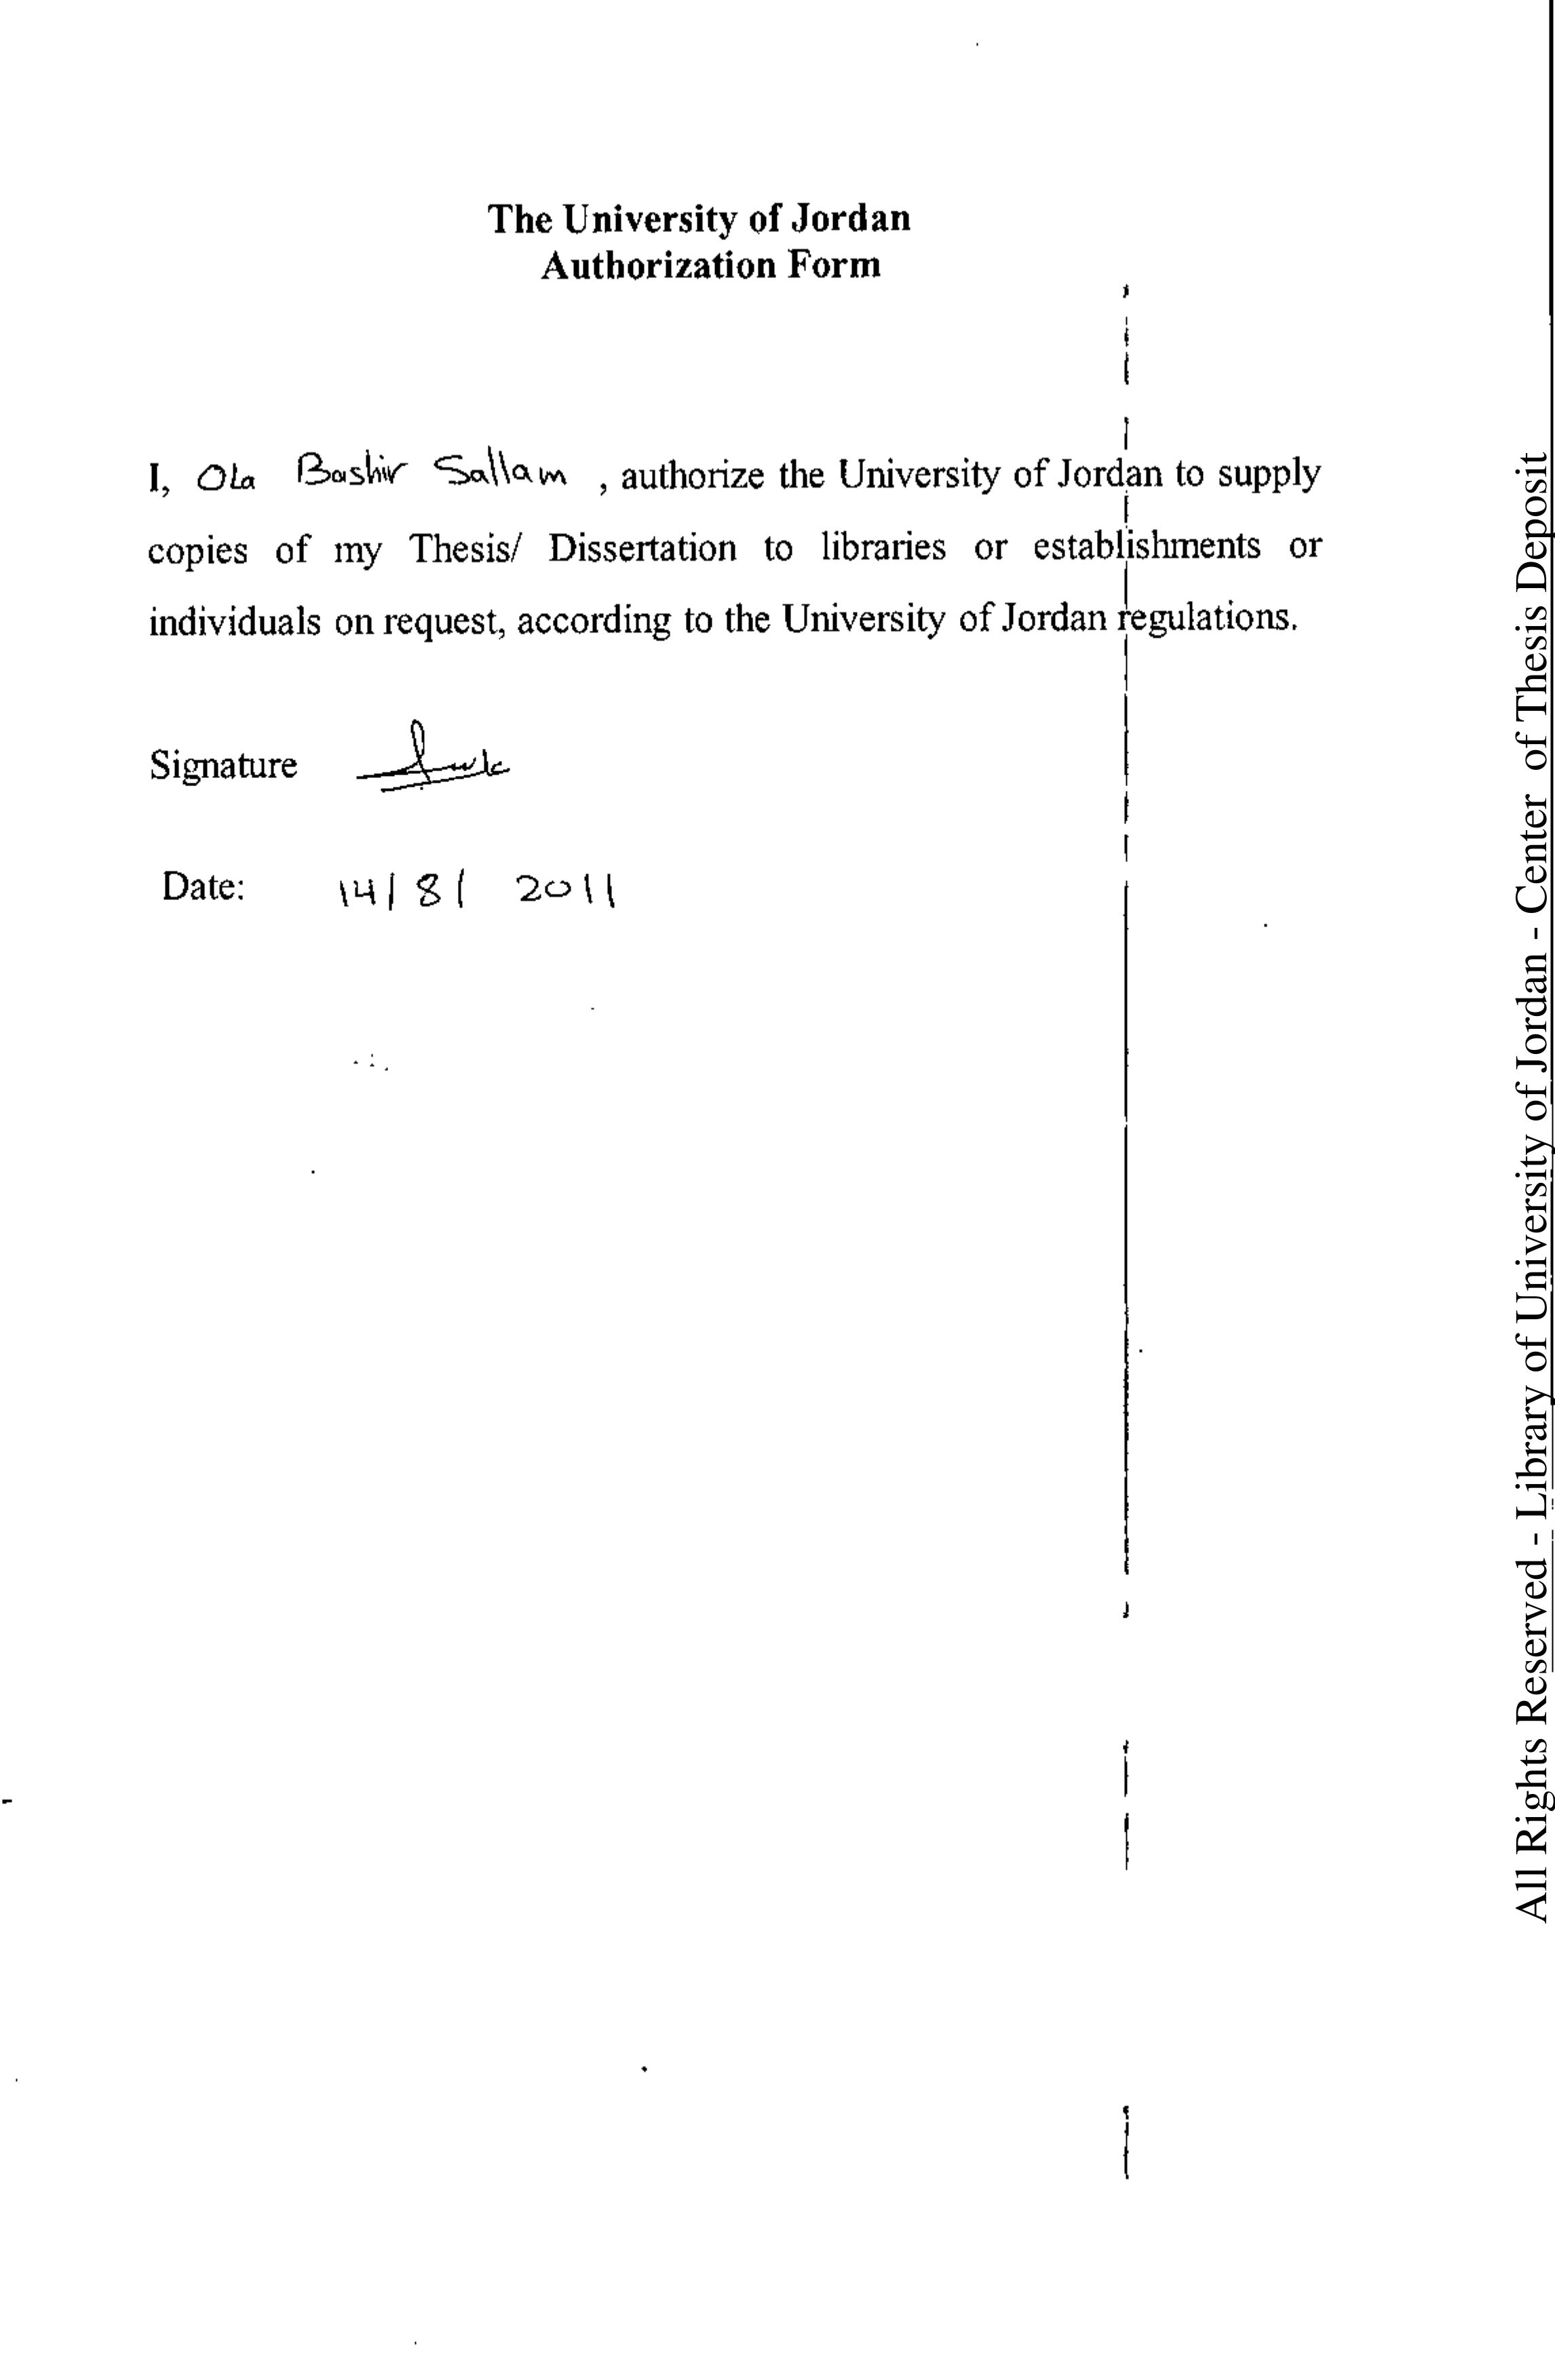 The University of Jordan
Authorization Form
I, Ola Bashir Sallam , authorize the University of Jordan to supply
copies of my Thesis/ Dissertation to libraries or establishments or
individuals on request, according to the University of Jordan regulations.
Signature
Date: 14/8/ 2011
All Rights Reserved - Library of University of Jordan - Center of Thesis Deposit